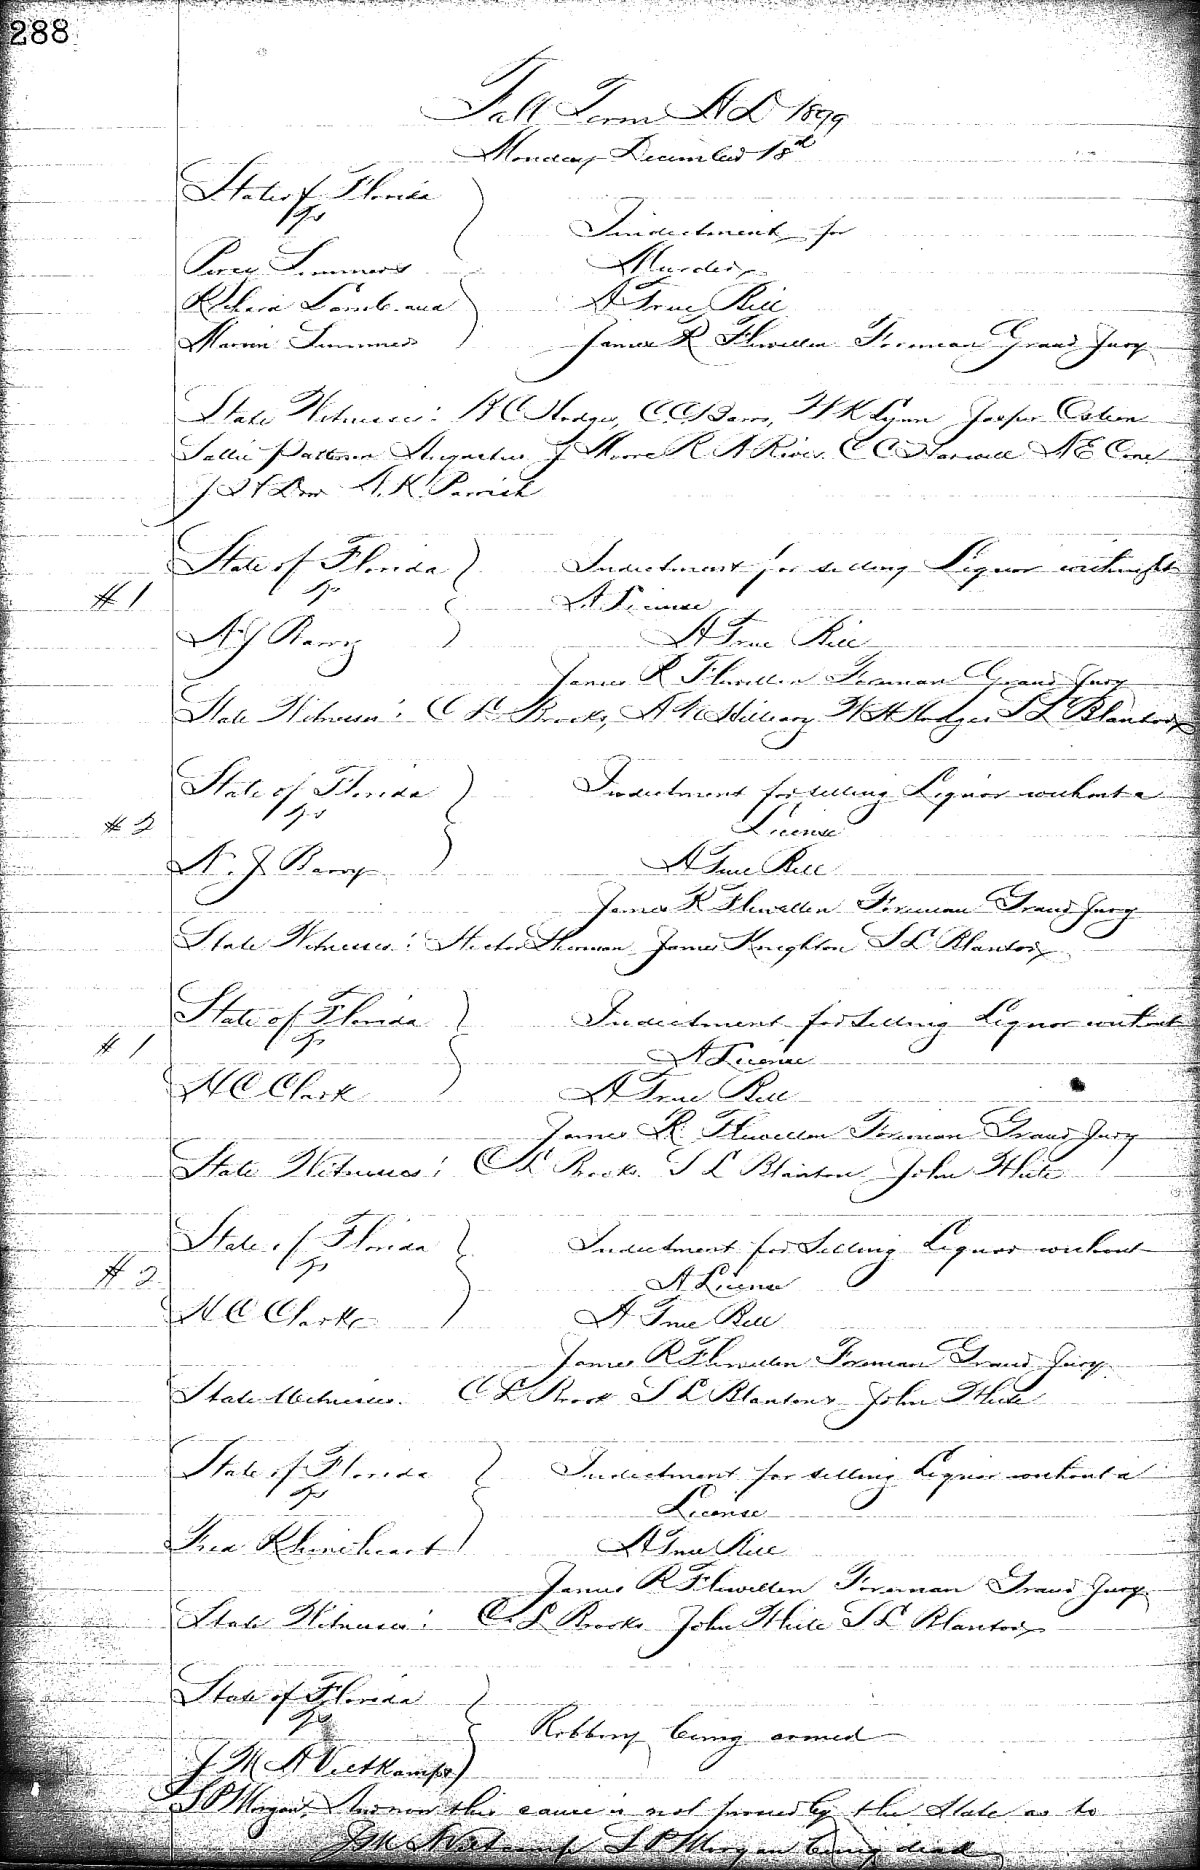 288
Fall Term A D 1899
Monday December 18th
State of Florida
vs
Indictment for
Percy Simmons Murder
Richard Lamb and A True Bill
Simmons James R Flewellen Foreman Grand Jury
State Witnesses: B C Hodges, C C W K Lynn Jasper
Sallie Patterson Augustus J Moore R A C C Harwell N E Cone
J A. K. Parrish
State of Florida Indictment for selling Liquor
vs
#1 A License
N J Barry A True Bill
James R Flewellen Foreman Grand Jury
State Witnesses: C L Brooks, A Mc W H Hodges S L Blanton
State of Florida Indictment for selling Liquor without a
vs
#2 License
N. J. Barry A True Bill
James R Flewellen Foreman Grand Jury
State Witnesses: Hector James Knighton S L Blanton
State of Florida Indictment for Selling Liquor without
vs
#1 A License
H C Clark A True Bill
James R. Flewellen Foreman Grand Jury
State Witnesses: C L Brooks. S L Blanton John White
State of Florida Indictment for Selling Liquor without
vs
#2 A License
H C Clarke A True Bill
James R Flewellen Foreman Grand Jury
State Witnesses. C L Brook S L Blanton John White
State of Florida Indictment for selling Liquor without a
vs
License
Fred Rhineheart A True Bill
James R Flewellen Foreman Grand Jury
State Witnesses: C. L Brooks John White S L Blanton
State of Florida
vs
Robbery being armed
J M A Vietkamp
S P Morgan. And now this cause is not by the State as to
S P Morgan being dead